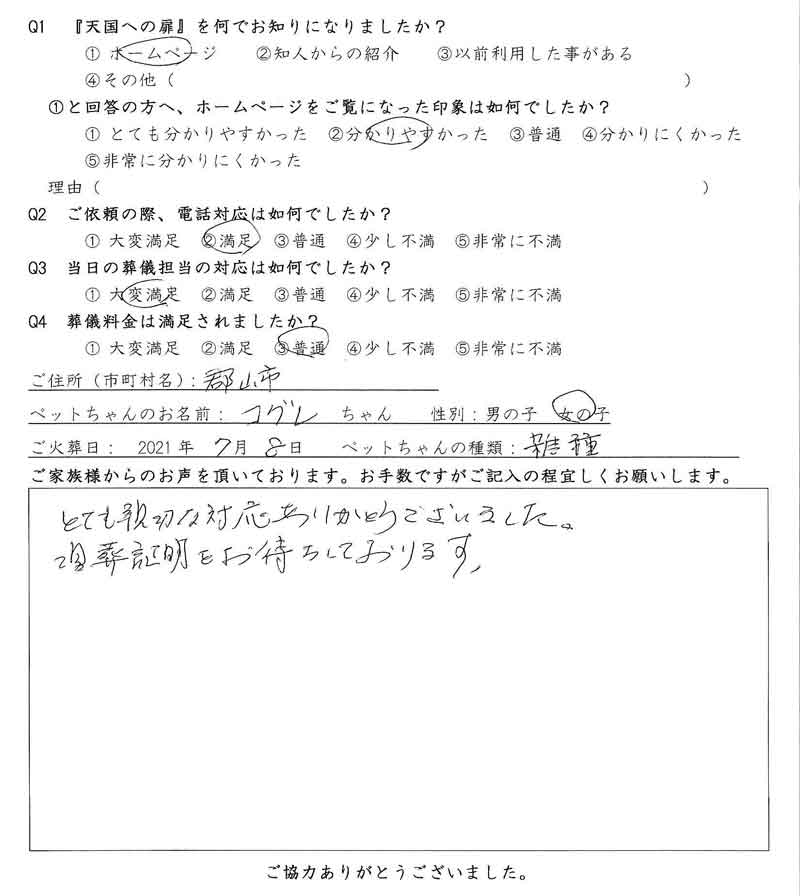 Q1 『天国への扉』を何でお知りになりましたか？
① ホームページ ②知人からの紹介 ③以前利用した事がある
④その他（ ）
①と回答の方へ、ホームページをご覧になった印象は如何でしたか？
① とても分かりやすかった ②分かりやすかった ③普通 ④分かりにくかった
⑤非常に分かりにくかった
理由（ ）
Q2 ご依頼の際、電話対応は如何でしたか？
① 大変満足 ②満足 ③普通 ④少し不満 ⑤非常に不満
Q3 当日の葬儀担当の対応は如何でしたか？
① 大変満足 ②満足 ③普通 ④少し不満 ⑤非常に不満
Q4 葬儀料金は満足されましたか？
① 大変満足 ②満足 ③普通 ④少し不満 ⑤非常に不満
ご住所（市町村名）：郡山市
ペットちゃんのお名前： コグレ ちゃん 性別：男の子 女の子
ご火葬日： 2021年 7月 8日 ペットちゃんの種類：雑種
ご家族様からのお声を頂いております。お手数ですがご記入の程宜しくお願いします。
とても親切な対応ありがとうございました。
葬証明をお待ちしております。
ご協力ありがとうございました。